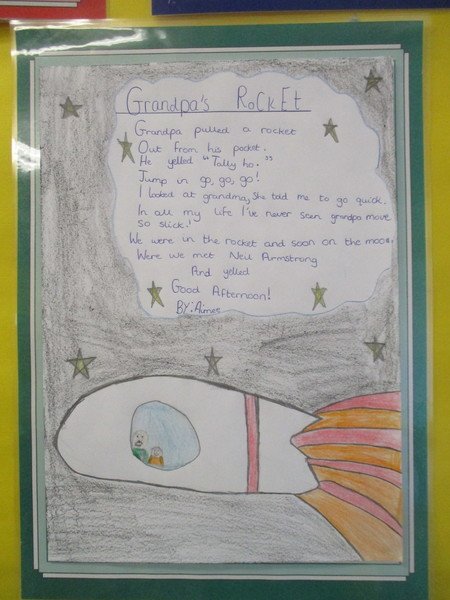 Grandpa's Rocket
Grandpa pulled a rocket
Out from his pocket.
He yelled "Tally ho."
Jump in go, go, go!
I looked at grandma, she told me to go quick.
In all my life I've never seen grandpa move
so slick!
We were in the rocket and soon on the moon.
Were we met Neil Armstrong
And yelled
Good Afternoon!
BY: Aimee